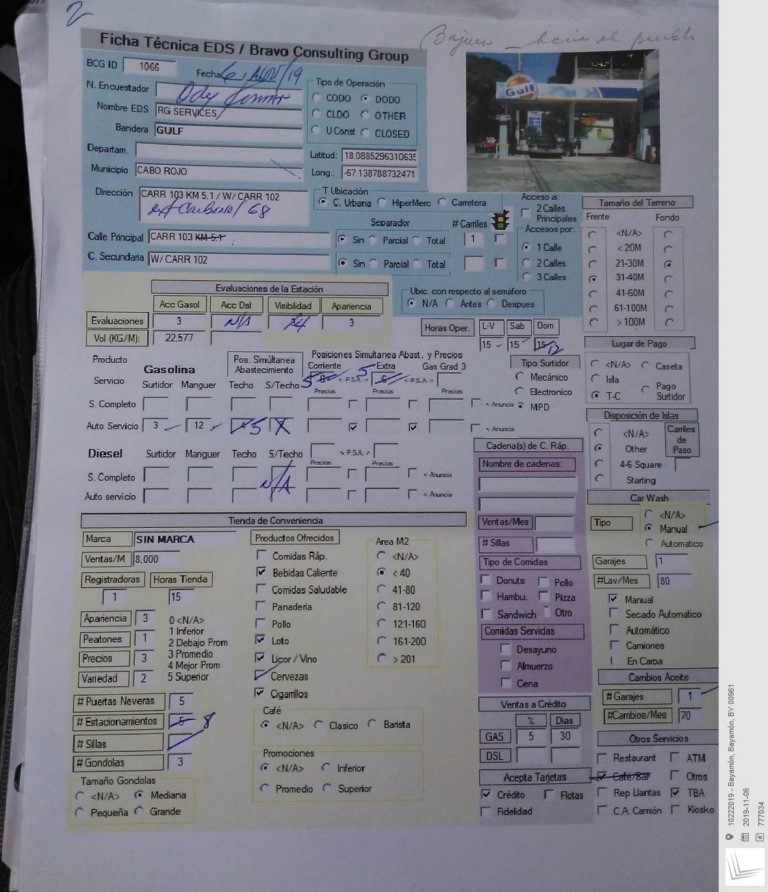 2
Ficha Técnica EDS / Bravo Consulting Group
BCG ID 1066
Fecha
N. Encuestador
Nombre EDS RG SERVICES
Bandera GULF
Departam.
Municipio CABO ROJO
Dirección CARR 103 KM 5.1 / W/ CARR 102
Calle Principal CARR 103 KM 5.1
C. Secundaria W/ CARR 102
Tipo de Operación
CODO DODO
CLDO OTHER
U Const CLOSED
Latitud: 18.0885296310635
Long.: -67.138788732471
Gulf
T Ubicación
C. Urbana HiperMerc Carretera
Separador # Carriles
Sin Parcial Total 1
Sin Parcial Total
Acceso a:
2 Calles
Principales
Accesos por:
1 Calle
2 Calles
3 Calles
Ubic. con respecto al semáforo
N/A Antes Despues
Tamaño del Terreno
Frente Fondo
<N/A>
< 20M
21-30M
31-40M
41-60M
61-100M
> 100M
Evaluaciones de la Estación
Acc Gasol Acc Dsl Visibilidad Apariencia
Evaluaciones 3 N/A 4 3
Vol (KG/M): 22,577
Horas Oper. L-V Sab Dom
15 15 15 12
Lugar de Pago
<N/A> Caseta
Isla
T-C Pago Surtidor
Producto Gasolina Pos. Simultánea Abastecimiento Posiciones Simultanea Abast. y Precios
Corriente 5 <P.S.A.> Extra 5 Gas Grad 3
Servicio Surtidor Manguer Techo S/Techo Precios Precios Precios
S. Completo < Anuncia
Auto Servicio 3 12 5 X < Anuncia
Tipo Surtidor
Mecánico
Electronico
MPD
Disposición de Islas
<N/A>
Other
4-6 Square
Starting
Carriles de Paso
Diesel Surtidor Manguer Techo S/Techo <P.S.A.>
Precios Precios
S. Completo N/A < Anuncia
Auto servicio < Anuncia
Cadena(s) de C. Ráp.
Nombre de cadenas:
Ventas/Mes
# Sillas
Tipo de Comidas
Donuts Pollo
Hambu. Pizza
Sandwich Otro
Comidas Servidas
Desayuno
Almuerzo
Cena
Car Wash
Tipo <N/A>
Manual
Automatico
Garajes 1
#Lav/Mes 80
Manual
Secado Automatico
Automático
Camiones
En Carpa
Cambios Aceite
# Garajes 1
#Cambios/Mes 70
Tienda de Conveniencia
Marca SIN MARCA
Ventas/M 8,000
Registradoras Horas Tienda
1 15
Apariencia 3
Peatones 1
Precios 3
Variedad 2
0 <N/A>
1 Inferior
2 Debajo Prom
3 Promedio
4 Mejor Prom
5 Superior
# Puertas Neveras 5
# Estacionamientos 5 8
# Sillas
# Gondolas 3
Tamaño Gondolas
<N/A> Mediana
Pequeña Grande
Productos Ofrecidos
Comidas Ráp.
Bebidas Caliente
Comidas Saludable
Panaderia
Pollo
Loto
Licor / Vino
Cervezas
Cigarrillos
Area M2
<N/A>
< 40
41-80
81-120
121-160
161-200
> 201
Café
<N/A> Clasico Barista
Promociones
<N/A> Inferior
Promedio Superior
Ventas a Crédito
% Dias
GAS 5 30
DSL
Acepta Tarjetas
Crédito Flotas
Fidelidad
Otros Servicios
Restaurant ATM
Café/Bar Otros
Rep Llantas TBA
C.A. Camión Kiosko
10222019 - Bayamón, Bayamón, BY 00961
2019-11-06
777034